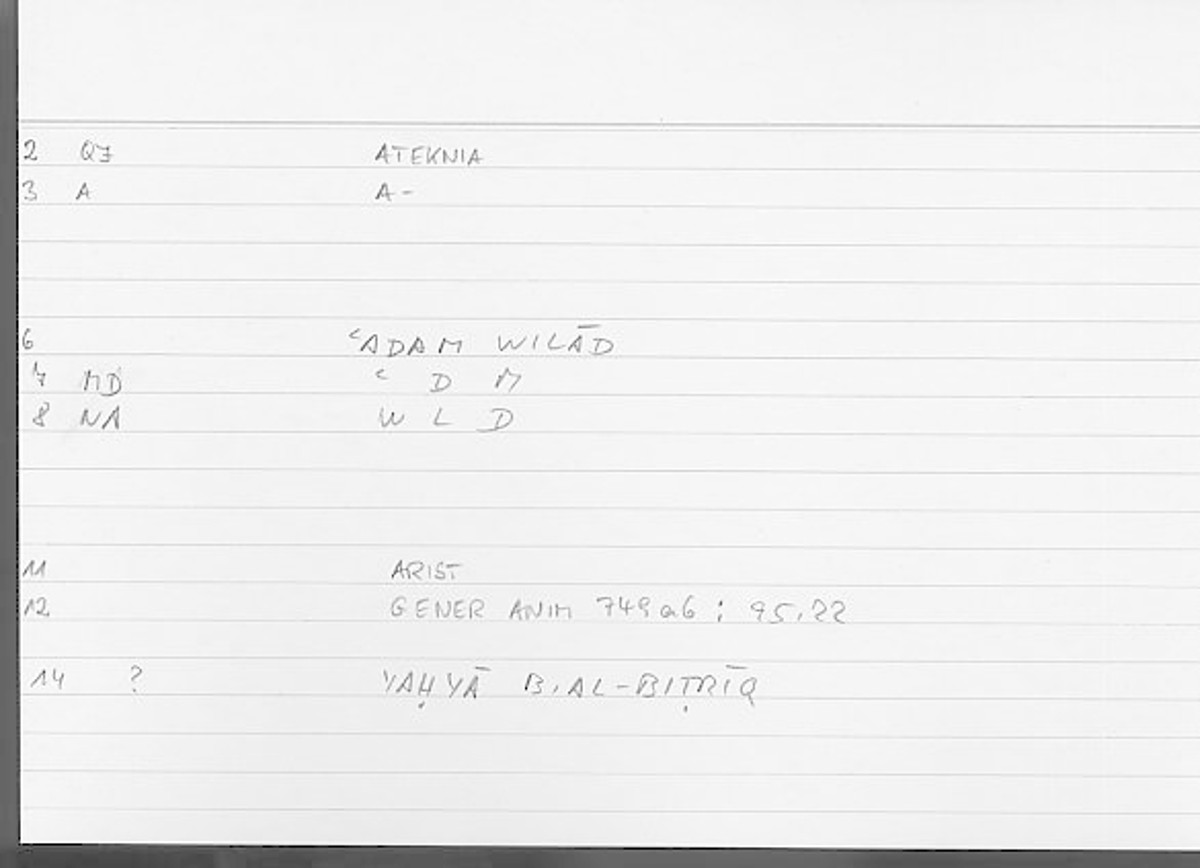 2 QZ ATEKNIA
3 A A-
6 ʿADAM WILĀD
7 MD ʿ D M
8 NA W L D
11 ARIST
12 GENER ANIM 749a6 : 95,22
14 ? YAḤYĀ B. AL-BIṬRĪQ